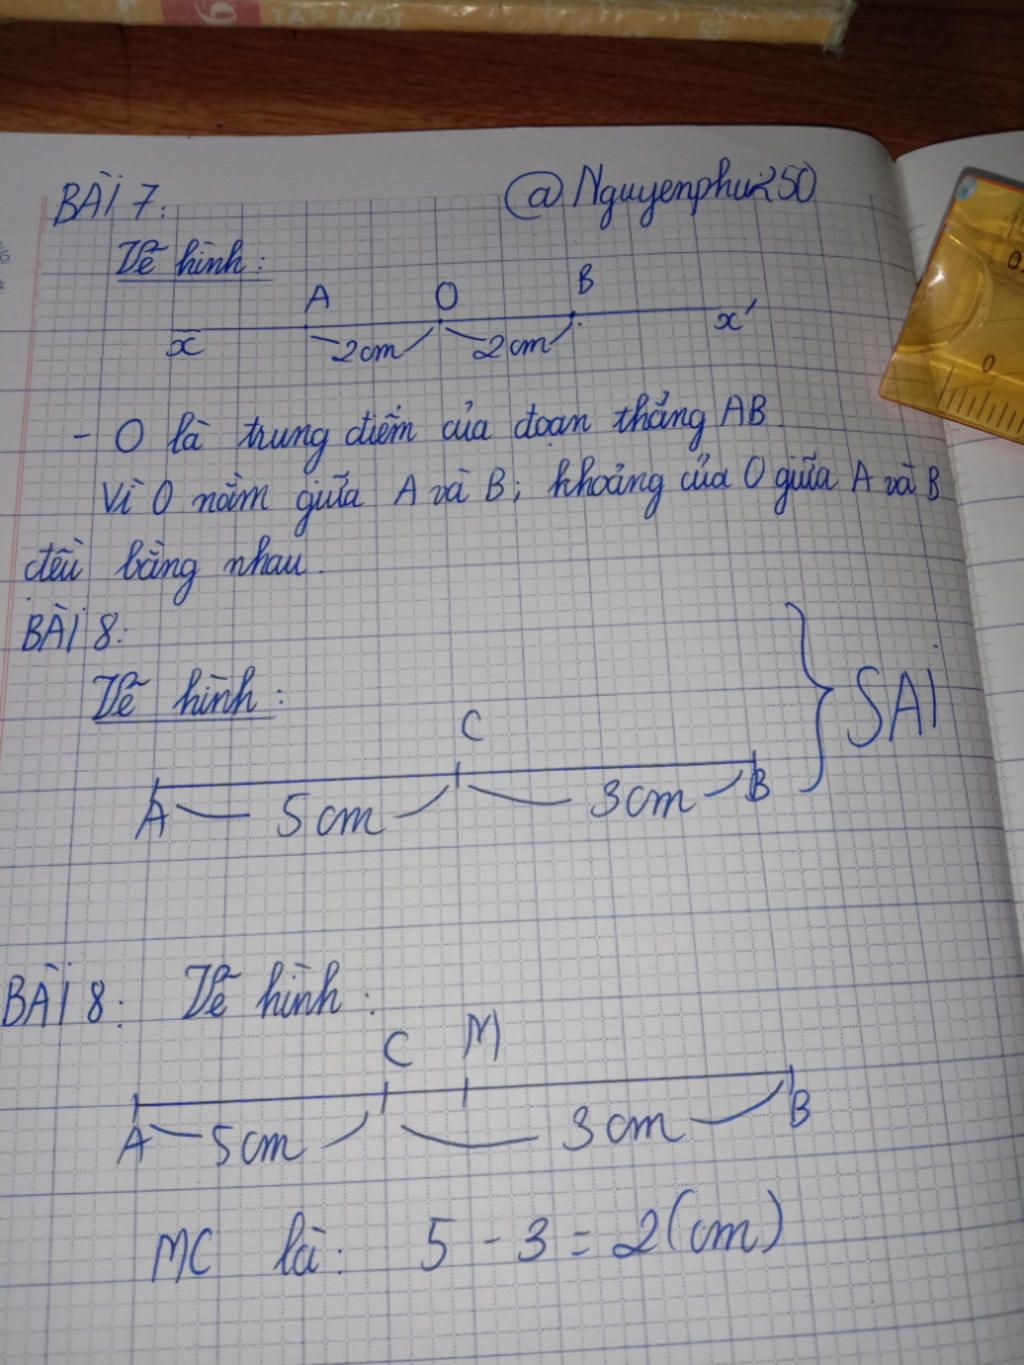 6 TẬP MỘT
BÀI 7: @Nguyenphu250
Vẽ hình:
A O B
x 2cm 2cm x'
- O là trung điểm của đoạn thẳng AB.
Vì O nằm giữa A và B; khoảng của O giữa A và B
đều bằng nhau.
BÀI 8:
Vẽ hình:
C
A 5cm 3cm B
SAI
BÀI 8: Vẽ hình:
C M
A 5cm 3cm B
MC là: 5 - 3 = 2(cm)
0